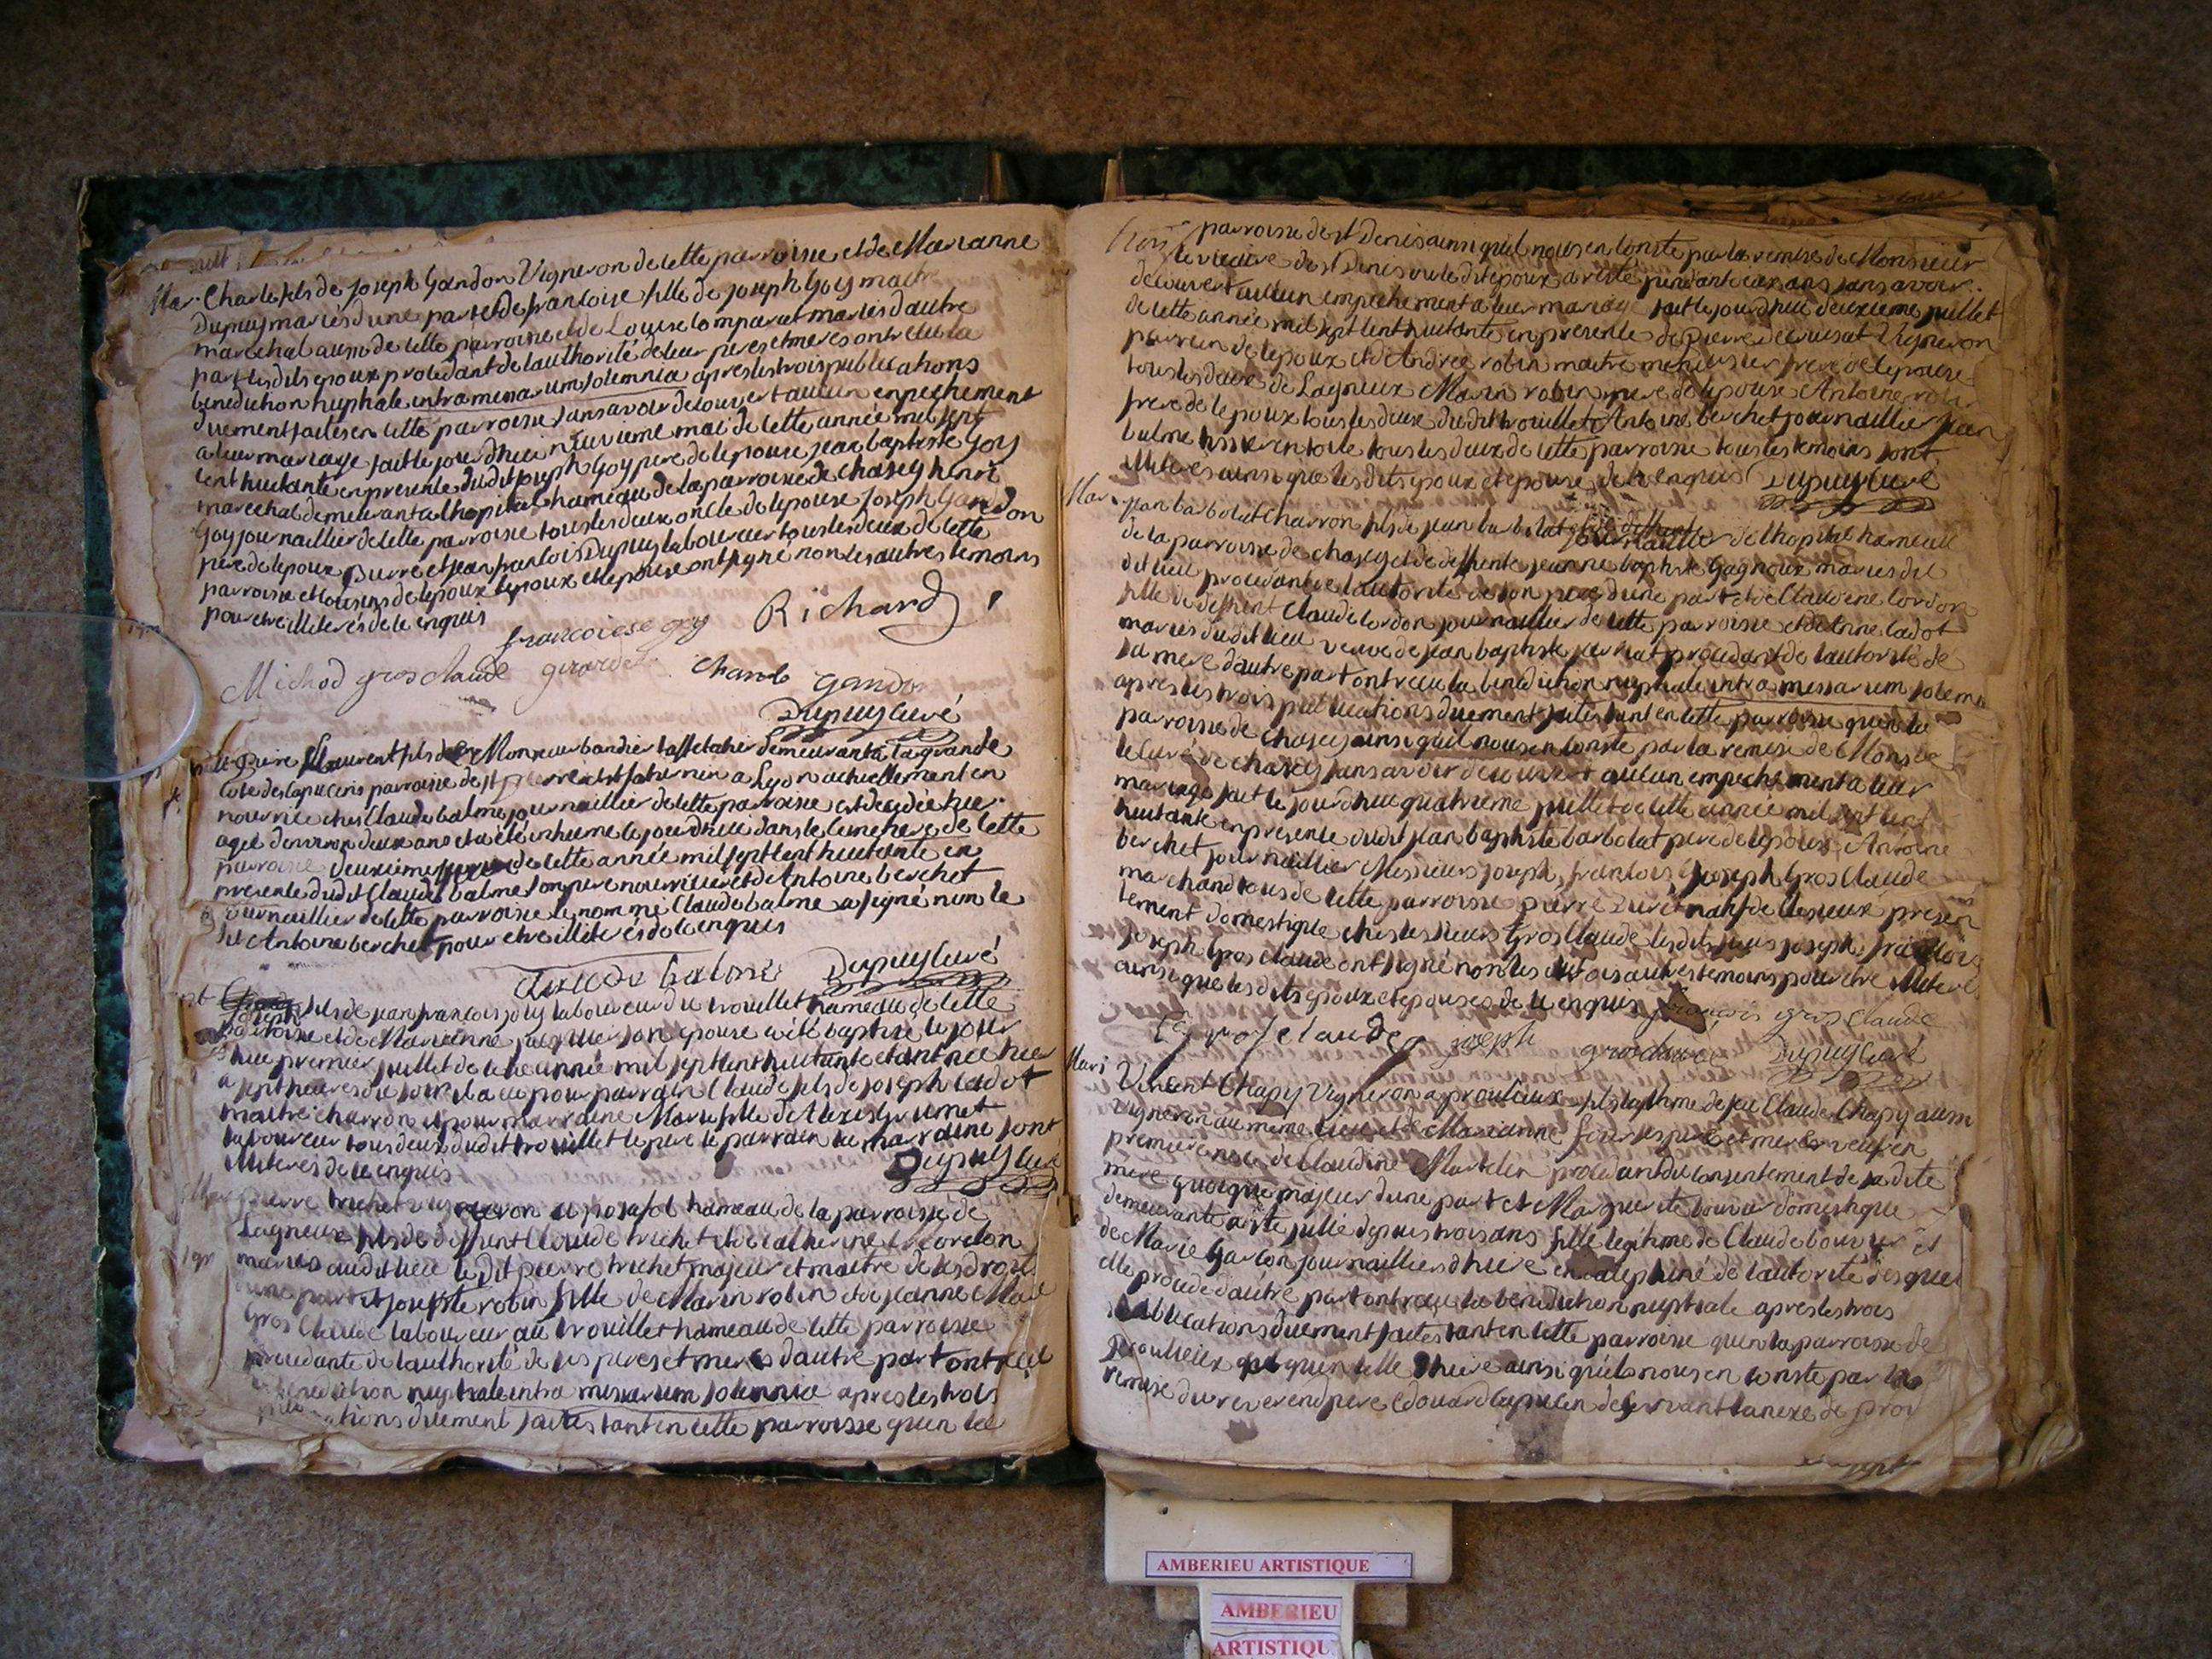 Mar. Charle fils de Joseph Gandon Vigneron de cette parroisse et de Marianne
Dupuy mariés d'une part et de francoise fille de Joseph Goy maitre
marechal aussi de cette parroisse et de Louise Comparat mariés dautre
part lesdits epoux procedant de lauthorité de leur peres et meres ont recu la
benediction nuptiale intra missarum solemnia apres les trois publications
duement faites en cette parroisse sans avoir decouvert aucun enpechement
a leur mariage fait le jourdhui neuvieme mai de cette année mil sept
cent huitante en presence dudit Joseph Goy pere de lepouse jean baptiste Goy
marechal demeurant a lhopital hameau de la parroisse de chasey henri
Goy journaillier de cette parroisse tous les deux oncle de lepouse Joseph Gandon
pere de lepoux pierre et jean francois Dupuy laboureur tous les deux de cette
parroisse et cousins de lepoux lepoux et lepouse ont signé non les autres temoins
pour etre illiterés de ce enquis
francoiese goy Richard
Michod gros claude girard charle gandon
Dupuy Curé
pierre Laurent fils de Monsieur bardier taffetatier demeurant a la grande
Cote des capucins parroisse de st pierre et st saturnin a Lyon actuellement en
nourrice ches Claude balme journaillier de cette parroisse est decedé hier
agé denviron deux ans et a été inhumé le jourdhui dans le cimetiere de cette
parroisse deuxieme de cette année mil sept cent huitante en
presence dudit Claude balme son pere nourricier et de Antoine berchet
journaillier de cette parroisse le nommé Claude balme a signé non le
dit Antoine berchet pour etre illiterés de ce enquis
claude balme Dupuy Curé
Joseph fils de jean francois joly laboureur du trouillet hameau de cette
parroisse et de Marianne jacquier son epouse a été baptisé le jour
dhui premier juillet de cette année mil sept cent huitante etant né hier
a sept heures du soir il a eu pour parrain Claude fils de Joseph Cadot
maitre charron et pour marraine Marie fille de Alexis Grumet
laboureur tous deux dudit trouillet le pere le parrain la marraine sont
illiterés de ce enquis Dupuy Curé
Mar pierre trichet vigneron a posafol hameau de la parroisse de
Lagneux fils de deffunt Claude trichet et de catherine Cordon
mariés audit lieu le dit pierre trichet majeur et maitre de ses droits
dune part et josephte robin fille de Marin robin et de jeanne Marie
Gros Claude laboureur au trouillet hameau de cette parroisse
procedante de lauthorité de ses peres et meres dautre part ont recu
benediction nuptiale intra missarum solemnia apres les trois
publications duement faites tant en cette parroisse quen la
parroisse de st Denis ainsi quil nous en conste par la remise de Monsieur
le vicaire de st Denis ou le dit epoux a resté pendant ans sans avoir
decouvert aucun empechement a leur mariage fait le jourdhui deuxieme juillet
de cette année mil sept cent huitante en presence de pierre decrusat Vigneron
parrein de lepoux et de Andrée robin maitre menuisier frere de lepouse
tous les deux de Lagneux Marin robin pere de lepouse Antoine robin
frere de lepoux tous les deux dudit trouillet Antoine berchet journaillier jean
balme tisseur en toile tous les deux de cette parroisse tous les temoins sont
illiterés ainsi que lesdits epoux et epouse de ce enquis Dupuy Curé
Mar. jean barbolat charron fils de jean barbolat journaillier de lhopital hameau
de la parroisse de chasey et de deffunte jeanne baptiste Gagnoux mariés du
dit lieu procedant de lautorité de son pere dune part et de Claudine Cordon
fille de deffunt Claude Cordon journaillier de cette parroisse et de Anne Cadot
mariés dudit lieu veuve de jean baptiste procedant de lautorité de
sa mere dautre part ont recu la benediction nuptiale intra missarum solemn
apres les trois publications duement faites tant en cette parroisse quen la
parroisse de chasey ainsi quil nous en conste par la remise de Mons
le curé de chasey sans avoir decouvert aucun empechement a leur
mariage fait le jourdhui quatrieme juillet de cette année mil sept cent
huitante en presence dudit jean baptiste barbolat pere de lepoux Antoine
berchet journaillier Messieurs joseph, francois, joseph Gros Claude
marchand tous de cette parroisse pierre natif de presen
tement domestique ches les sieurs Gros Claude lesdits sieurs joseph, francois
joseph Gros Claude ont signé non les autres temoins pour etre illiteré
ainsi que lesdits epoux et epouses de ce enquis françois gros claude
gros claude joseph gros claude Dupuy Curé
Mari Vincent Chapy Vigneron a proulieux fils legitime de feu Claude Chapy aussi
vigneron au meme lieu et de Marianne ses pere et mere veuf en
premiere noce de Claudine Martelin procedant du consentement de sa dite
mere quoique majeur dune part et Marguerite bouvier domestique
demeurante a ste julie depuis trois ans fille legitime de Claude bouvier et
de Marie Garcon journailliers dhiere en dauphiné de lautorité desquels
elle procede dautre part ont recu la benediction nuptiale apres les trois
publications duement faites tant en cette parroisse quen la parroisse de
proulieux quen celle dhiere ainsi quil nous en conste par la
remise du reverend pere Edouard Capucin desservant lanexe de prou
AMBERIEU ARTISTIQUE
AMBERIEU
ARTISTIQU